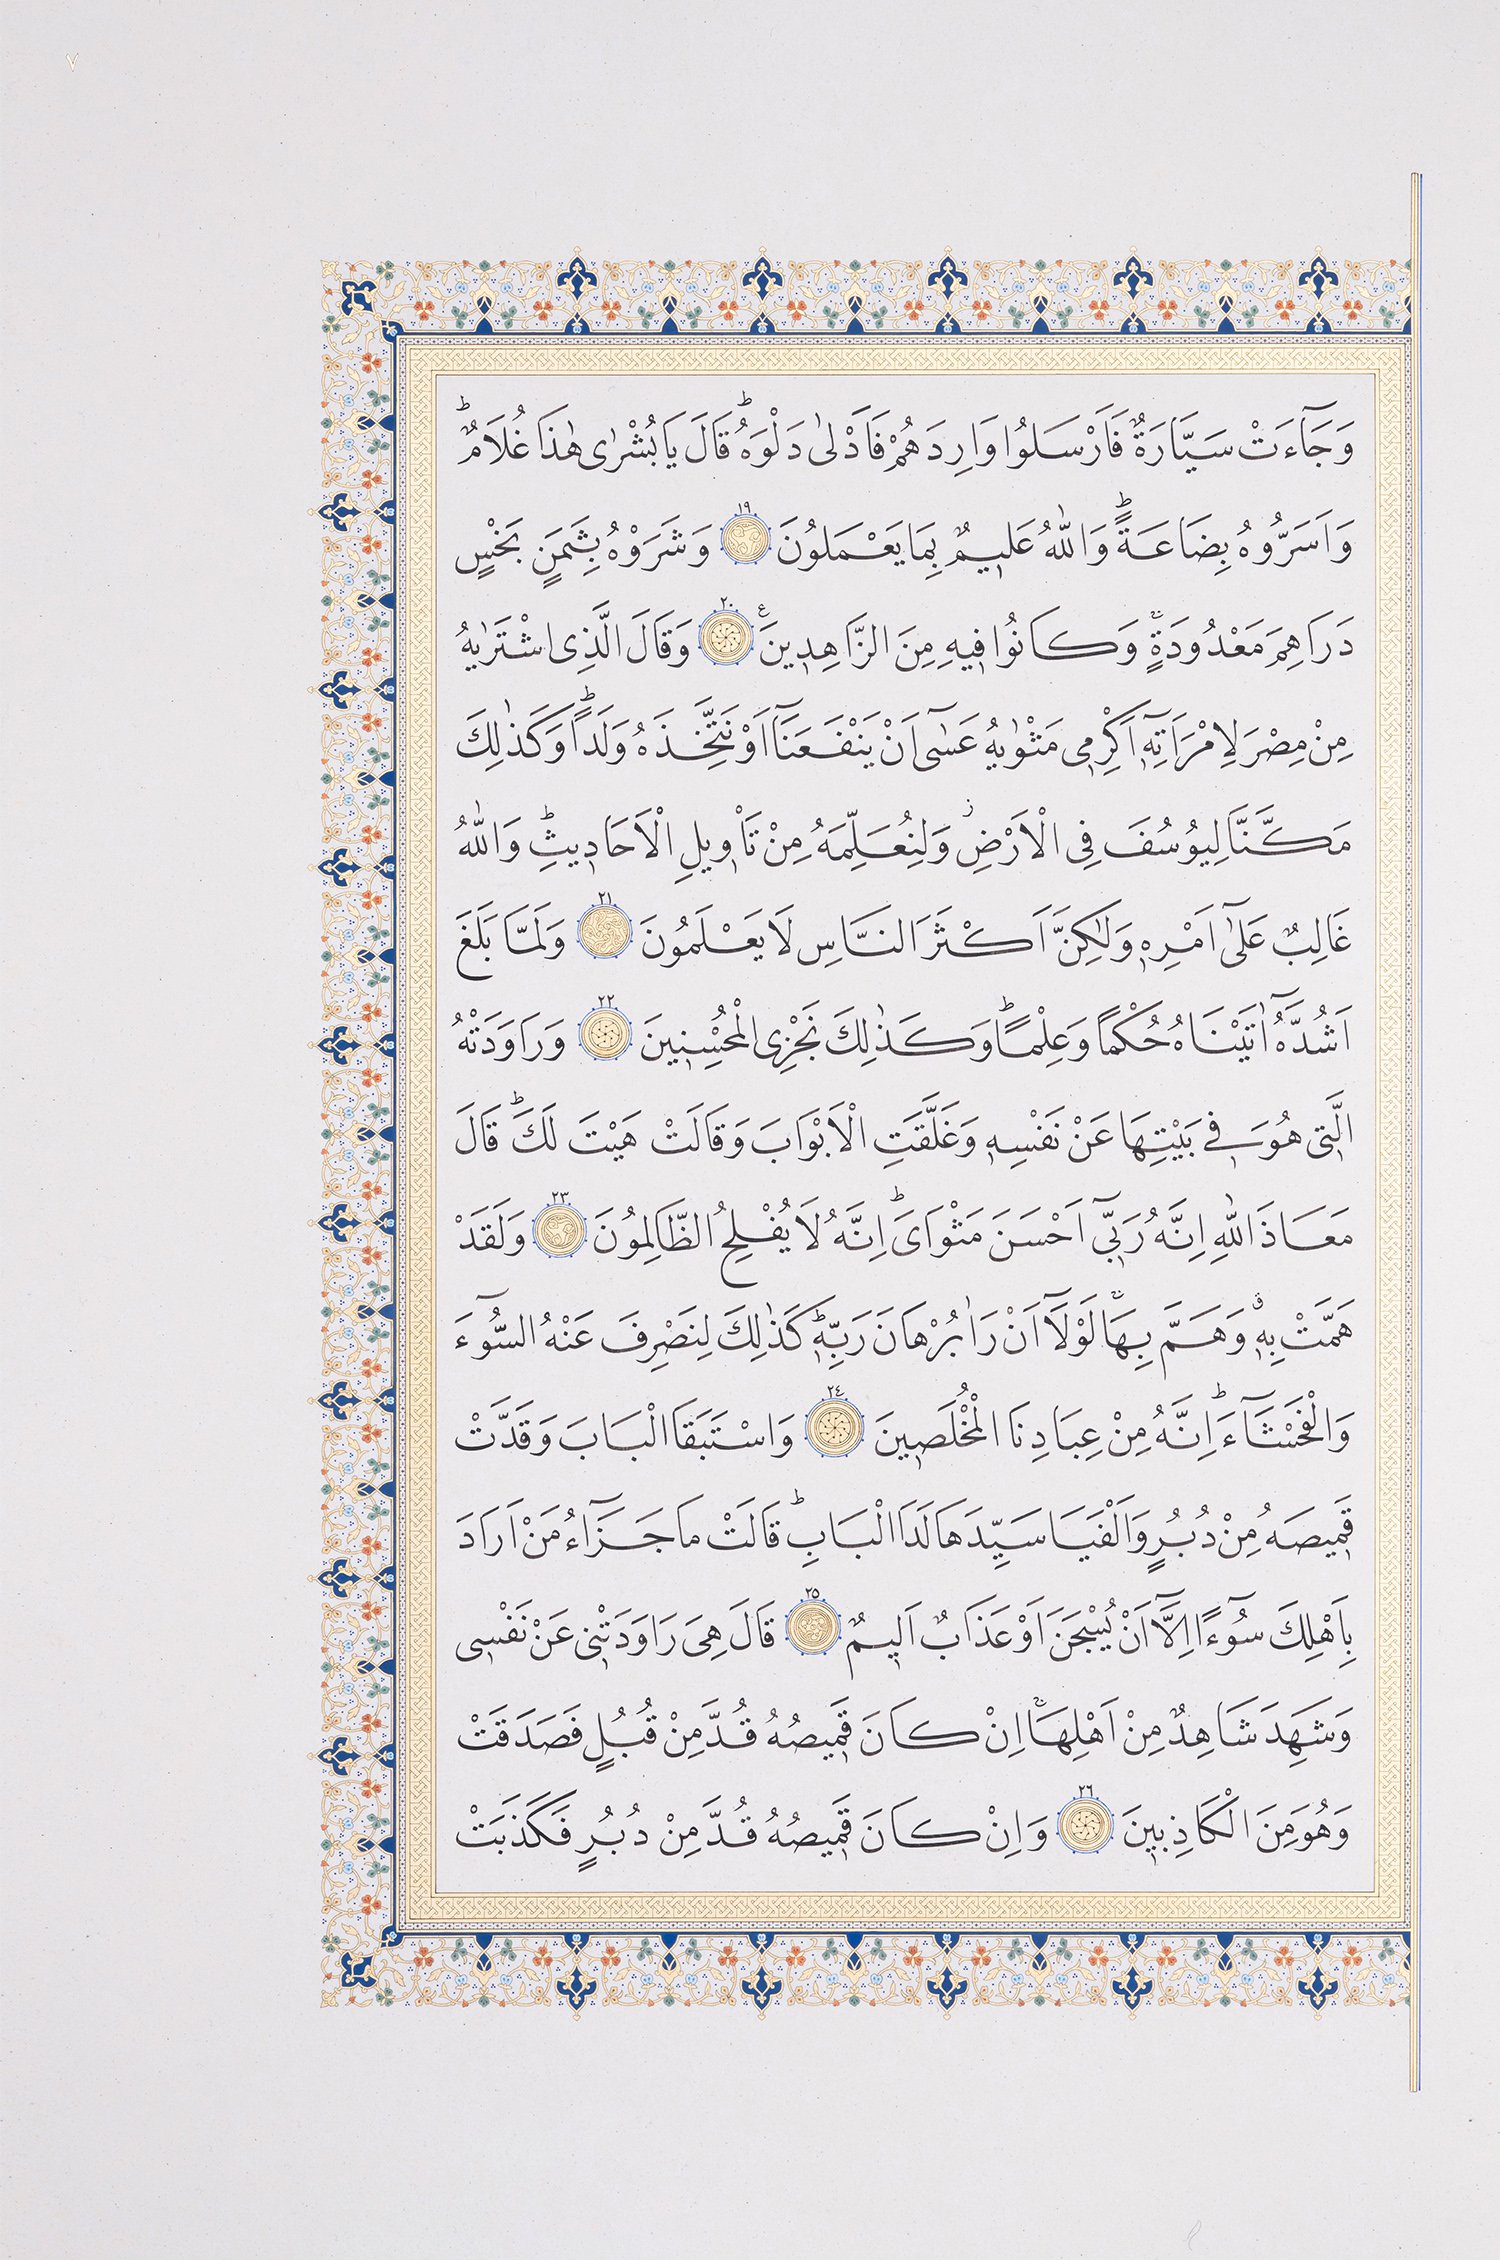 ٧
وَجَآءَتْ سَيَّارَةٌ فَاَرْسَلُوا وَارِدَهُمْ فَاَدْلٰى دَلْوَهُۜ قَالَ يَا بُشْرٰى هٰذَا غُلَامٌۜ
وَاَسَرُّوهُ بِضَاعَةًۜ وَاللّٰهُ عَلٖيمٌ بِمَا يَعْمَلُونَ ١٩ وَشَرَوْهُ بِثَمَنٍ بَخْسٍ
دَرَاهِمَ مَعْدُودَةٍۚ وَكَانُوا فٖيهِ مِنَ الزَّاهِدٖينَ ࣖ ٢٠ وَقَالَ الَّذِى اشْتَرٰيهُ
مِنْ مِصْرَ لِامْرَاَتِهٖٓ اَكْرِمٖى مَثْوٰيهُ عَسٰٓى اَنْ يَنْفَعَنَٓا اَوْ نَتَّخِذَهُ وَلَدًاۜ وَكَذٰلِكَ
مَكَّنَّا لِيُوسُفَ فِى الْاَرْضِؗ وَلِنُعَلِّمَهُ مِنْ تَاْوٖيلِ الْاَحَادٖيثِۜ وَاللّٰهُ
غَالِبٌ عَلٰٓى اَمْرِهٖ وَلٰكِنَّ اَكْثَرَ النَّاسِ لَا يَعْلَمُونَ ٢١ وَلَمَّا بَلَغَ
اَشُدَّهُٓ اٰتَيْنَاهُ حُكْمًا وَعِلْمًاۜ وَكَذٰلِكَ نَجْزِى الْمُحْسِنٖينَ ٢٢ وَرَاوَدَتْهُ
الَّتٖى هُوَ فٖى بَيْتِهَا عَنْ نَفْسِهٖ وَغَلَّقَتِ الْاَبْوَابَ وَقَالَتْ هَيْتَ لَكَۜ قَالَ
مَعَاذَ اللّٰهِ اِنَّهُ رَبّٖٓى اَحْسَنَ مَثْوَاىَۜ اِنَّهُ لَا يُفْلِحُ الظَّالِمُونَ ٢٣ وَلَقَدْ
هَمَّتْ بِهٖۗ وَهَمَّ بِهَاۚ لَوْلَٓا اَنْ رَاٰ بُرْهَانَ رَبِّهٖۜ كَذٰلِكَ لِنَصْرِفَ عَنْهُ السُّٓوءَ
وَالْفَحْشَٓاءَۜ اِنَّهُ مِنْ عِبَادِنَا الْمُخْلَصٖينَ ٢٤ وَاسْتَبَقَا الْبَابَ وَقَدَّتْ
قَمٖيصَهُ مِنْ دُبُرٍ وَاَلْفَيَا سَيِّدَهَا لَدَا الْبَابِۜ قَالَتْ مَا جَزَٓاءُ مَنْ اَرَادَ
بِاَهْلِكَ سُٓوءًا اِلَّٓا اَنْ يُسْجَنَ اَوْ عَذَابٌ اَلٖيمٌ ٢٥ قَالَ هِىَ رَاوَدَتْنٖى عَنْ نَفْسٖى
وَشَهِدَ شَاهِدٌ مِنْ اَهْلِهَاۚ اِنْ كَانَ قَمٖيصُهُ قُدَّ مِنْ قُبُلٍ فَصَدَقَتْ
وَهُوَ مِنَ الْكَاذِبٖينَ ٢٦ وَاِنْ كَانَ قَمٖيصُهُ قُدَّ مِنْ دُبُرٍ فَكَذَبَتْ